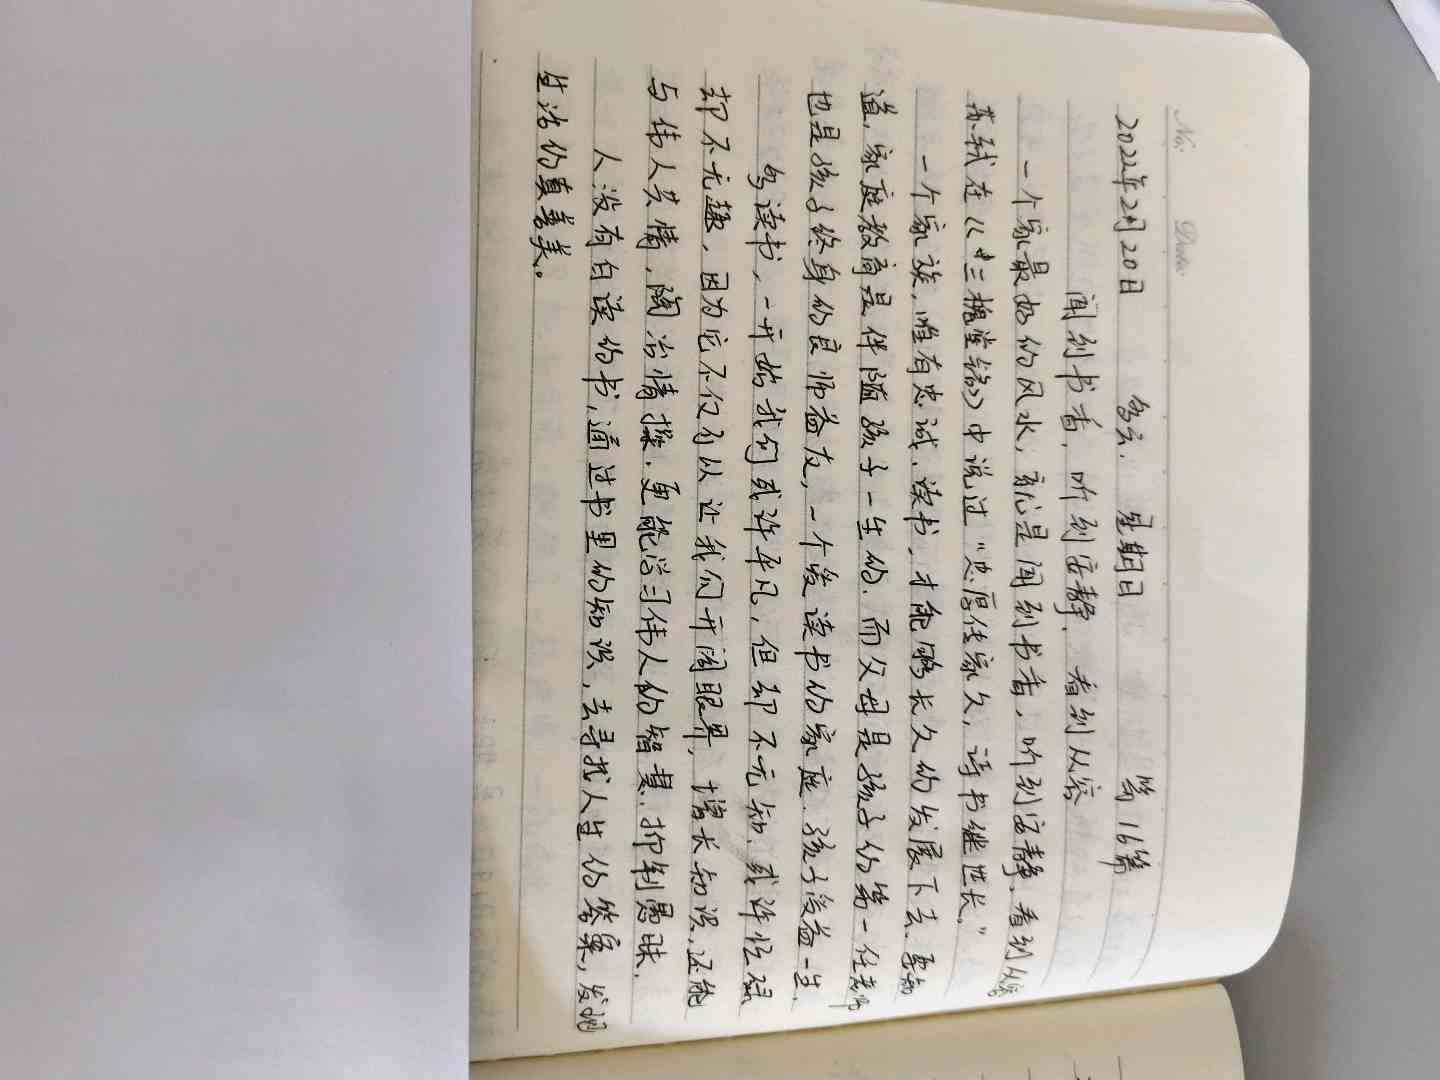 No:
Date:
2022年2月20日 多云. 星期日 第16篇
闻到书香，听到安静，看到从容
一个家最好的风水，就是闻到书香，听到安静，看到从容
苏轼在《《三槐堂铭》》中说过“忠厚传家久，诗书继世长。”
一个家族，唯有忠诚、读书，才能够长久的发展下去.要知
道，家庭教育是伴随孩子一生的.而父母是孩子的第一任老师
也是孩子终身的良师益友，一个爱读书的家庭.孩子受益一生.
多读书，一开始我们或许平凡，但却不无知.或许忙碌
却不无趣，因为它不仅可以让我们开阔眼界，增长知识，还能
与伟人共情，陶冶情操.更能学习伟人的智慧.抑制愚昧.
人没有白读的书，通过书里的知识，去寻找人生的答案，发现
生活的真善美。